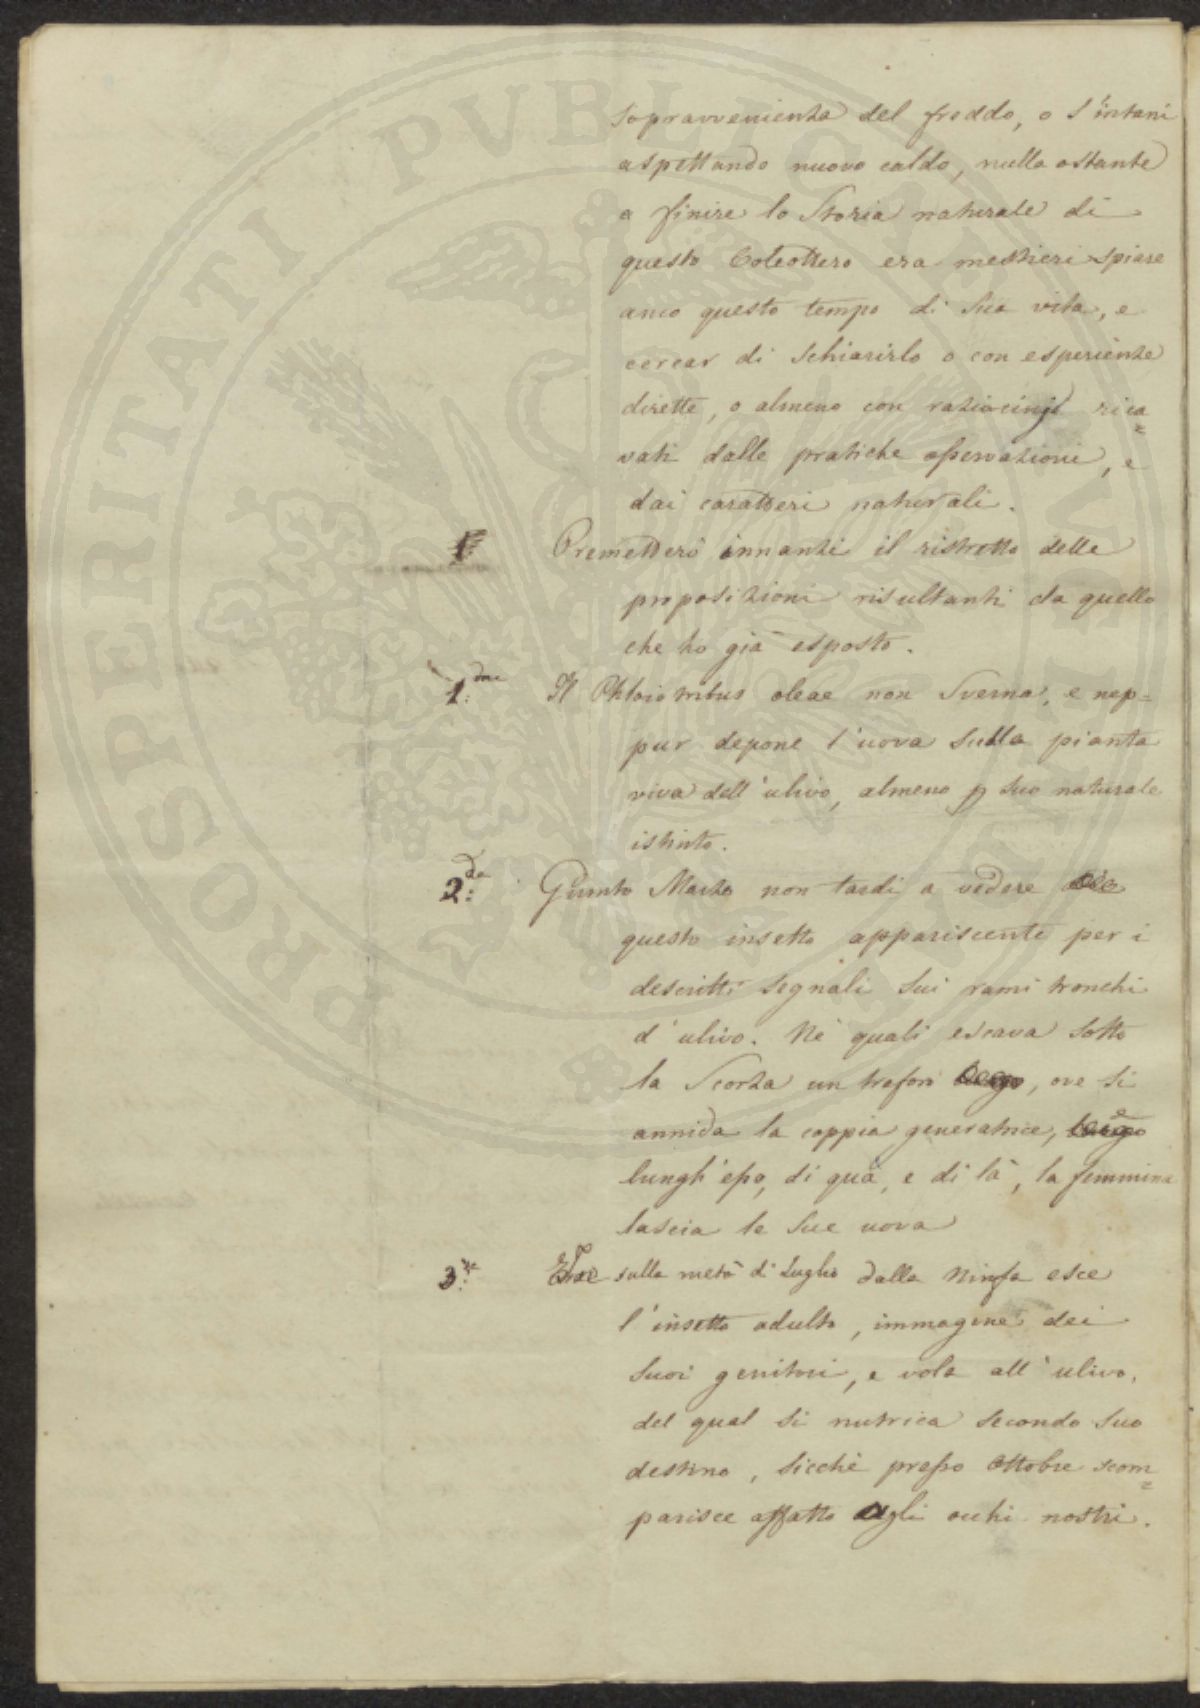 sopravvenienza del freddo, o s'intani
aspettando nuovo caldo, nulla ostante
a finire la Storia naturale di
questo Coleottero era mestieri spiare
anco questo tempo di sua vita, e
cercar di schiarirlo o con esperienze
dirette, o almeno con raziocinj rica
vati dalle pratiche osservazioni, e
dai caratteri naturali.
Premetterò innanzi il ristretto delle
proposizioni risultanti da quello
che ho già esposto.
1: Il Phloiotribus oleae non sverna, e nep=
pur depone l'uova sulla pianta
viva dell'ulivo, almeno p suo naturale
istinto.
2:da Giunto Marzo non tardi a vedere
questo insetto appariscente per i
descritti segnali sui rami tronchi
d'ulivo. Nè quali escava sotto
la Scorza un traforo, ove si
annida la coppia generatrice, e
lungh'esso, di quà, e di là, la femmina
lascia le sue uova
3: sulla metà di Luglio dalla Ninfa esce
l'insetto adulto, immagine dei
suoi genitori, e vola all'ulivo,
del qual si nutrica secondo suo
destino, sicchè presso Ottobre scom=
parisce affatto agli occhi nostri.
PROSPERITATI PVBLICAE